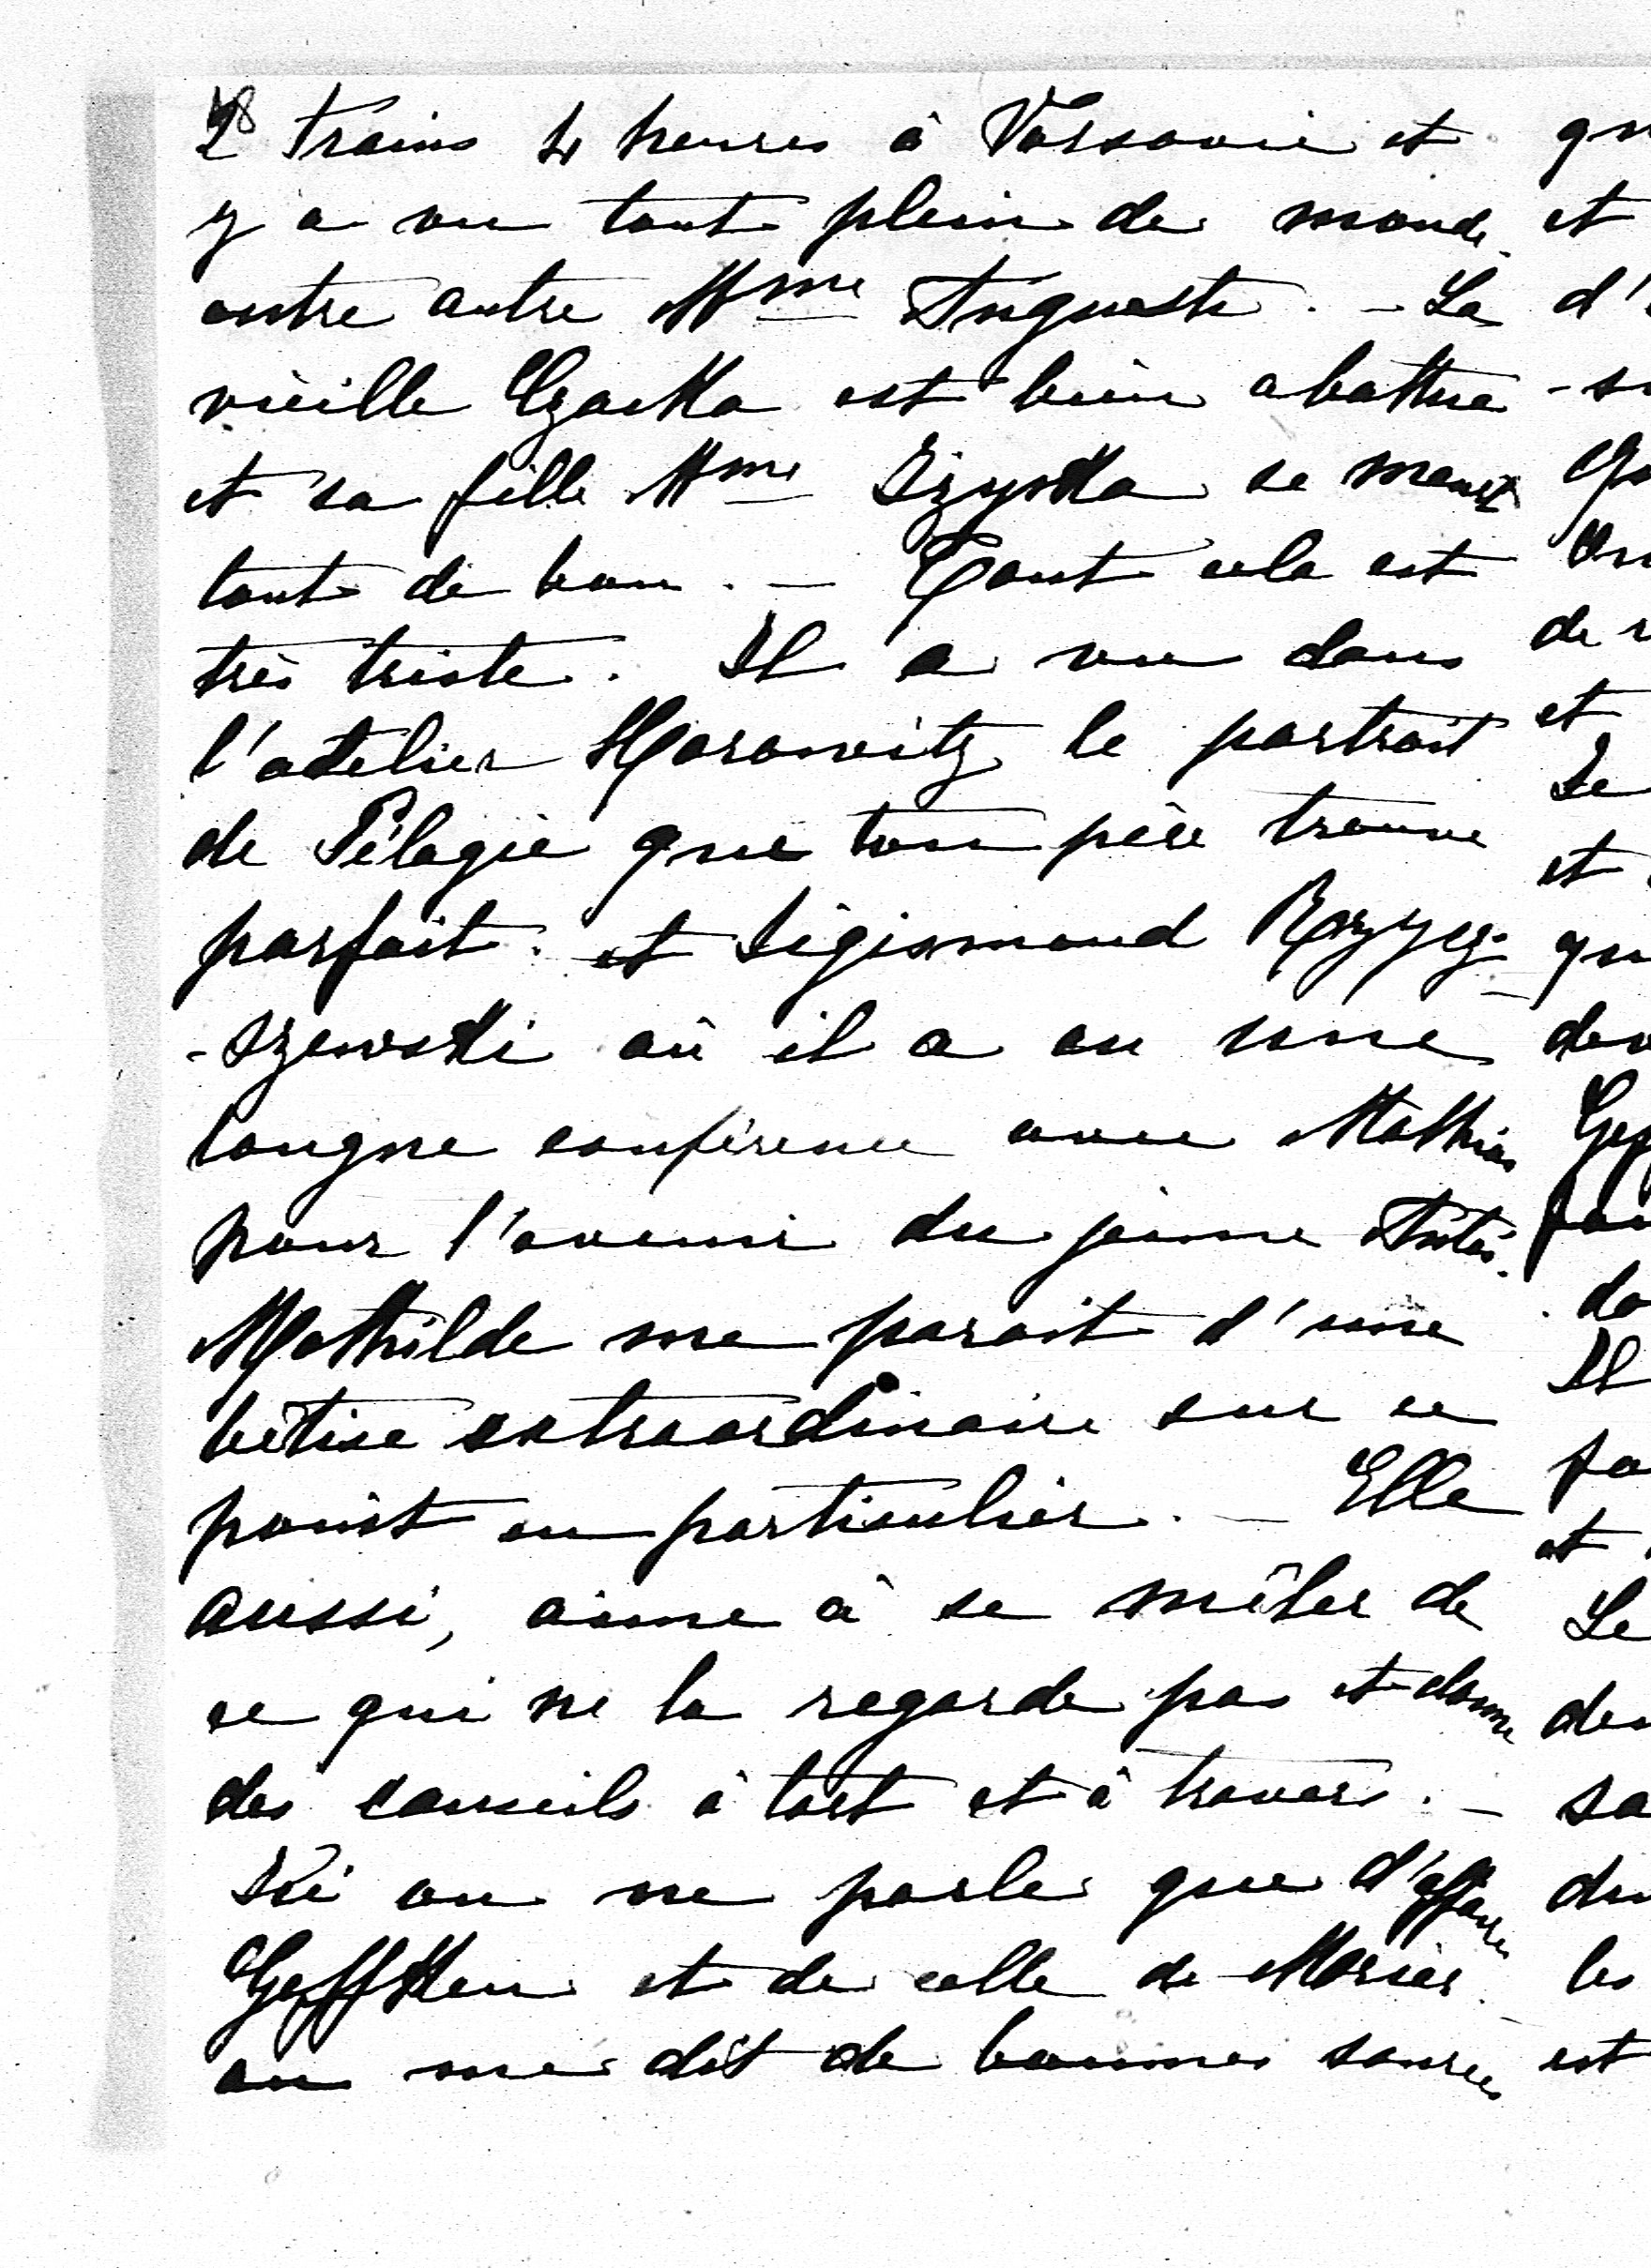 2 trains 4 heures à Varsovie et
y a vu tout plein de monde
entre autre Mme Auguste. - La
vieille Czacka est bien abattue
et sa fille Mme Izycka se meurt
tout de bon. - Tout cela est
très triste. Il a vu dans
l'atelier Horowitz le portrait
de Pélagie que ton père trouve
parfait. et Sigismond
-szewski où il a eu une
longue conférence avec Mathias
pour l'avenir du jeune
Mathilde me parait d'une
bêtise extraordinaire sur ce
point en particulier. - Elle
aussi, aime à se mêler de
ce qui ne la regarde pas et donne
des conseils à tort et à travers. -
Ici on ne parle que d'affaire
Geffken et de celle de Morier.
on me dit de bonnes sources
et
d'
de
et
et
Il
et
Le
les
est